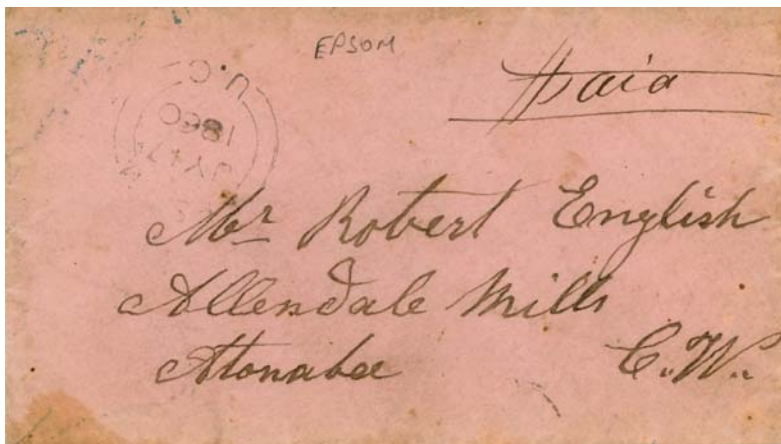 EPSOM
Paid
U.C.
JY 17
1860
Mr Robert English
Allendale Mills
Atonabee
C.W.